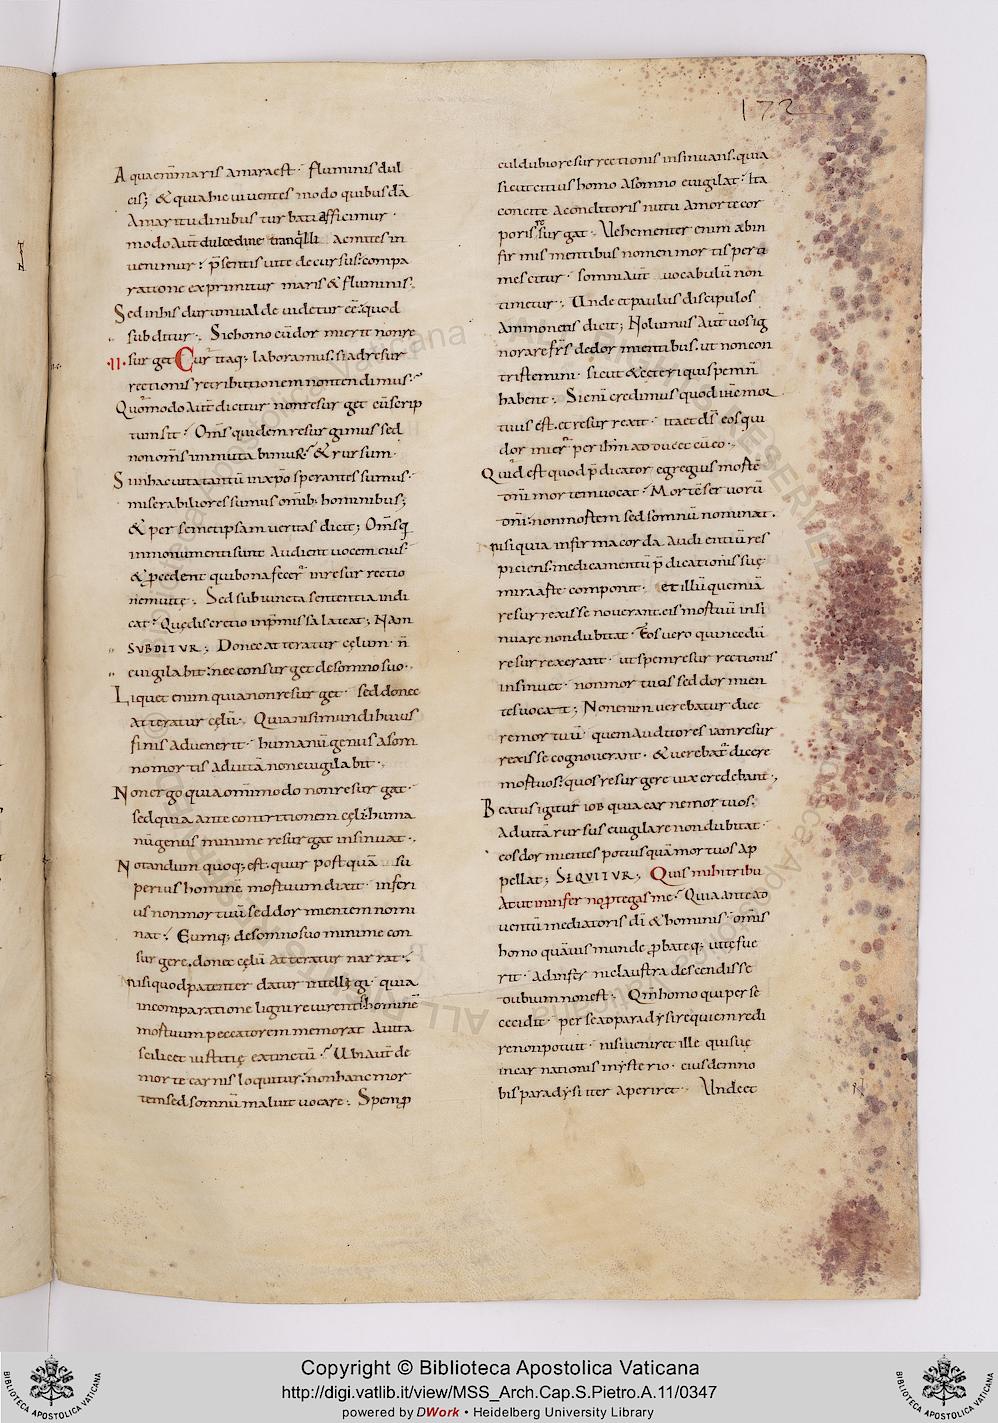 172
Aqua enī maris amara est · fluminis dul
cis; & quia hic viventes modo quibusdā
amaritudinibus turbati afficimur ·
modo aut̄ dulcedine tranq̇lli ac mites in
venimur · p̄sentis vite decursus compa
ratione exprimitur maris & fluminis.
Sed in his dur um valde videtur eē quod
subditur. Sic homo cū dormierit non re
.II. surget Cur itaq; laboramus si ad resur
rectionis retributionem non tendimus.
Quom̄odo aut̄ dicitur non resurget cū scrip
tum sit · Om̄s quidem resurgimus sed
non om̄s immutabimur. & rursum.
Si in hac vita tantū in xp̄o sperantes sumus
miserabiliores sumus om̄ib; hominibus;
& per semetipsam veritas dicit; Om̄s q̄
in monumentis sunt audient vocem eius
& pcedent qui bona fecer̄ in resurrectio
nem vitę. Sed subiuncta sententia indi
cat · Quę discretio in p̄missa lateat; Nam
SUBDITUR; Donec atteratur cęlum n̄
evigilabit nec consurget de somno suo.
Liquet enim quia non resurget sed donec
atteratur cęlū. Quia nisi mundi huius
finis advenerit humanū genus a som
no mortis ad vitā non evigilabit.
Non ergo quia omnimodo non resurgat
sed quia ante contritionem cęli huma
nū genus minime resurgat insinuat.
Notandum quoq; est quur post quā su
perius hominē mortuum dixit inferi
us non mortuū sed dormientem nomi
nat. Eumq; de somno suo minime con
surgere donec cęlū atteratur narrat.
nisi quod patenter datur intelligi quia
in comparatione ligni revirentis hominē
mortuum peccatorem memorat a vita
scilicet iustitię extinctū. Ubi aut̄ de
morte carnis loquitur non hanc mor
tem sed somnū maluit vocare. Spem p
cul dubio resurrectionis insinuans quia
sicut citius homo a somno evigilat ita
concite a conditoris nutu a morte cor
poris resurgat. Vehementer enim ab in
firmis mentibus nomen mortis perti
mescitur somni aut̄ vocabulū non
timetur. Unde et paulus discipulos
ammonens dicit; Nolumus aut̄ vos ig
norare frs̄ de dormientibus ut non con
tristemini sicut & ceteri qui spem n̄
habent. Si enī credimus quod ih̄c mor
tuus est et resurrexit ita et ds̄ eos qui
dormier̄ per ihm̄ adducet cū eo.
Quid est quod p̄dicator egregius mortē
dn̄i mortem vocat Mortē servorū
dn̄i non mortem sed somnū nominat.
nisi quia infirma corda audientiū res
piciens medicamentū p̄dicationis suę
mira arte componit et illū quem iā
resurrexisse noverant eis mortuū insi
nuare non dubitat Eos vero qui necdū
resurrexerant ut spem resurrectionis
insinuet non mortuos sed dormien
tes vocat; Non enim verebatur dice
re mortuū quem auditores iam resur
rexisse cognoverant & verebat̄ dicere
mortuos quos resurgere vix credebant.
Beatus igitur iob quia carne mortuos
ad vitā rursus evigilare non dubitat
eos dormientes potius quā mortuos ap
pellat; SEQUITUR; Quis mihi tribu
at ut in infer no ptegas me. Quia ante ad
ventū mediatoris di & hominis om̄is
homo quāvis munde pbateq; vitę fue
rit ad inferni claustra descendisse
dubium non est. Qm̄ homo qui per se
cecidit per se ad paradysi requiem redi
re non potuit nisi veniret ille qui suę
incarnationis mysterio eiusdem no
bis paradysi iter aperiret. Unde et
Copyright © Biblioteca Apostolica Vaticana
http://digi.vatlib.it/view/MSS_Arch.Cap.S.Pietro.A.11/0347
powered by DWork • Heidelberg University Library